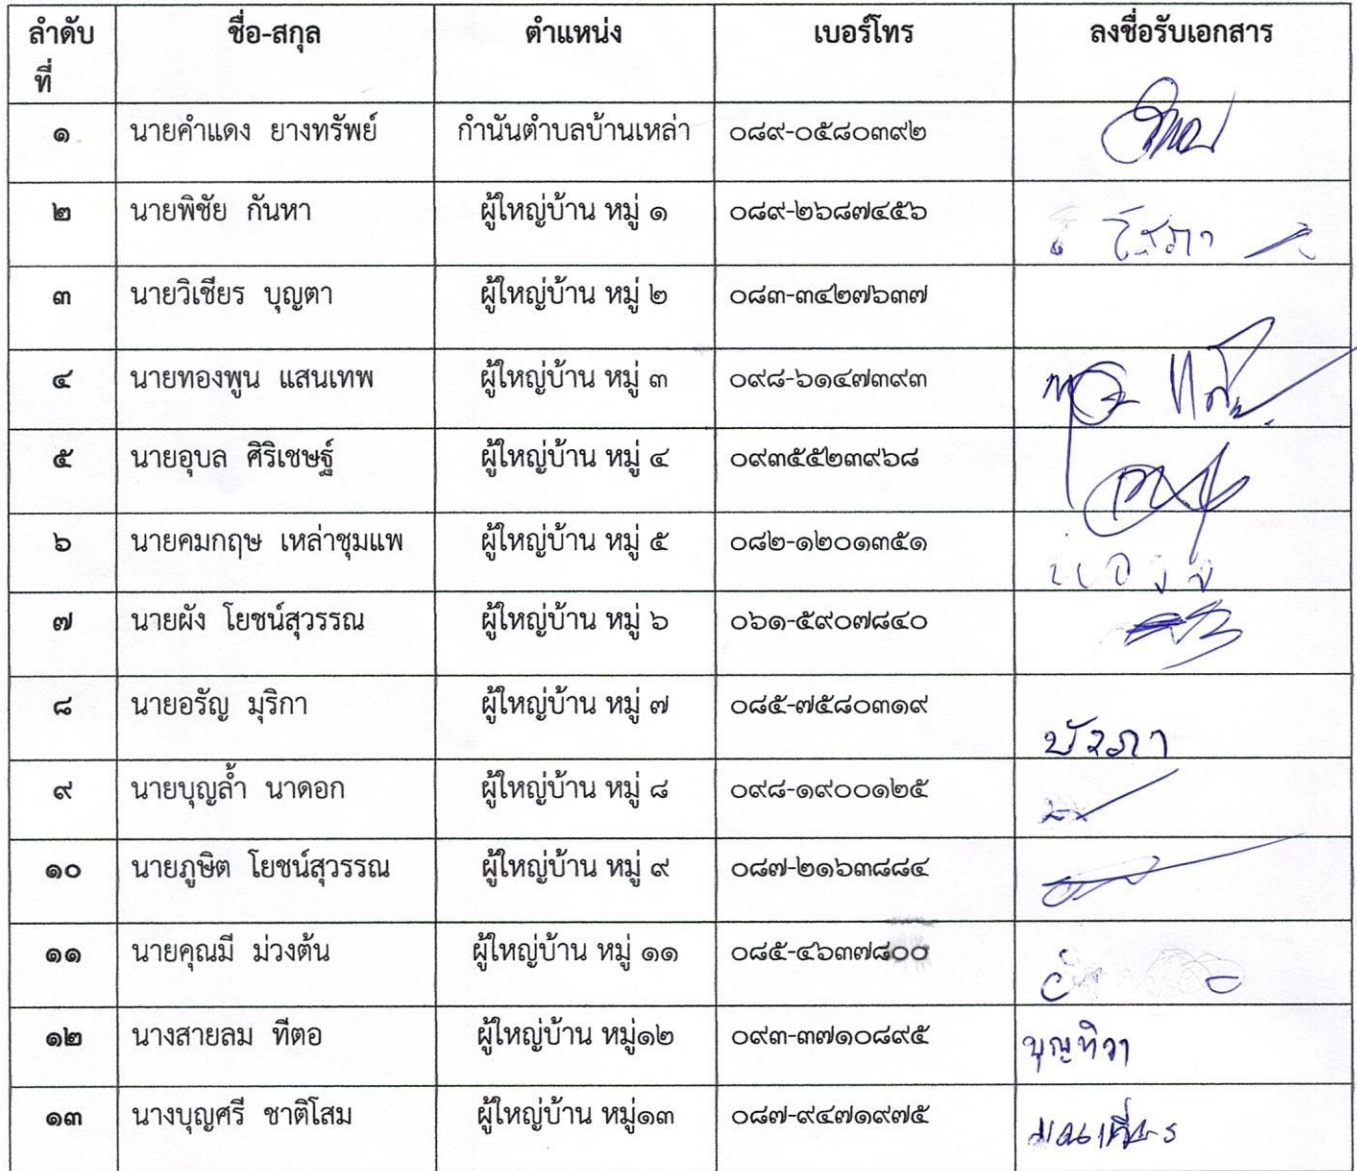 ลำดับที่ ชื่อ-สกุล ตำแหน่ง เบอร์โทร ลงชื่อรับเอกสาร
๑ นายคำแดง ยางทรัพย์ กำนันตำบลบ้านเหล่า ๐๘๙-๐๕๘๐๓๙๒
๒ นายพิชัย กันหา ผู้ใหญ่บ้าน หมู่ ๑ ๐๘๙-๒๖๘๗๔๕๖
๓ นายวิเชียร บุญตา ผู้ใหญ่บ้าน หมู่ ๒ ๐๘๓-๓๔๒๗๖๓๗
๔ นายทองพูน แสนเทพ ผู้ใหญ่บ้าน หมู่ ๓ ๐๙๘-๖๑๔๗๓๙๓
๕ นายอุบล ศิริเชษฐ์ ผู้ใหญ่บ้าน หมู่ ๔ ๐๙๓๕๕๒๓๙๖๘
๖ นายคมกฤษ เหล่าชุมแพ ผู้ใหญ่บ้าน หมู่ ๕ ๐๘๒-๑๒๐๑๓๕๑
๗ นายผัง โยชน์สุวรรณ ผู้ใหญ่บ้าน หมู่ ๖ ๐๖๑-๕๙๐๗๘๔๐
๘ นายอรัญ มุริกา ผู้ใหญ่บ้าน หมู่ ๗ ๐๘๕-๗๕๘๐๓๑๙
๙ นายบุญล้ำ นาดอก ผู้ใหญ่บ้าน หมู่ ๘ ๐๙๘-๑๙๐๐๑๒๕
๑๐ นายภูษิต โยชน์สุวรรณ ผู้ใหญ่บ้าน หมู่ ๙ ๐๘๗-๒๑๖๓๘๘๔
๑๑ นายคุณมี ม่วงต้น ผู้ใหญ่บ้าน หมู่ ๑๑ ๐๘๕-๔๖๓๗๘๐๐
๑๒ นางสายลม ทีตอ ผู้ใหญ่บ้าน หมู่๑๒ ๐๙๓-๓๗๑๐๘๙๕ บุญทิวา
๑๓ นางบุญศรี ชาติโสม ผู้ใหญ่บ้าน หมู่๑๓ ๐๘๗-๙๔๗๑๙๗๕